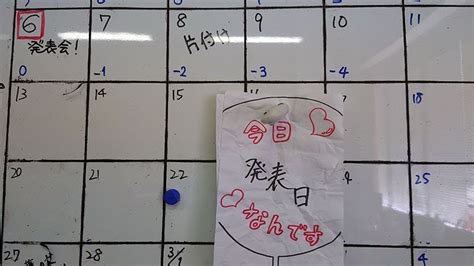 6 7 8 9 10 11
発表会! 片付け
0 -1 -2 -3 -4
13 14 15 18
今日
発表
日
なんです
20 21 22 25
27 28 3/1